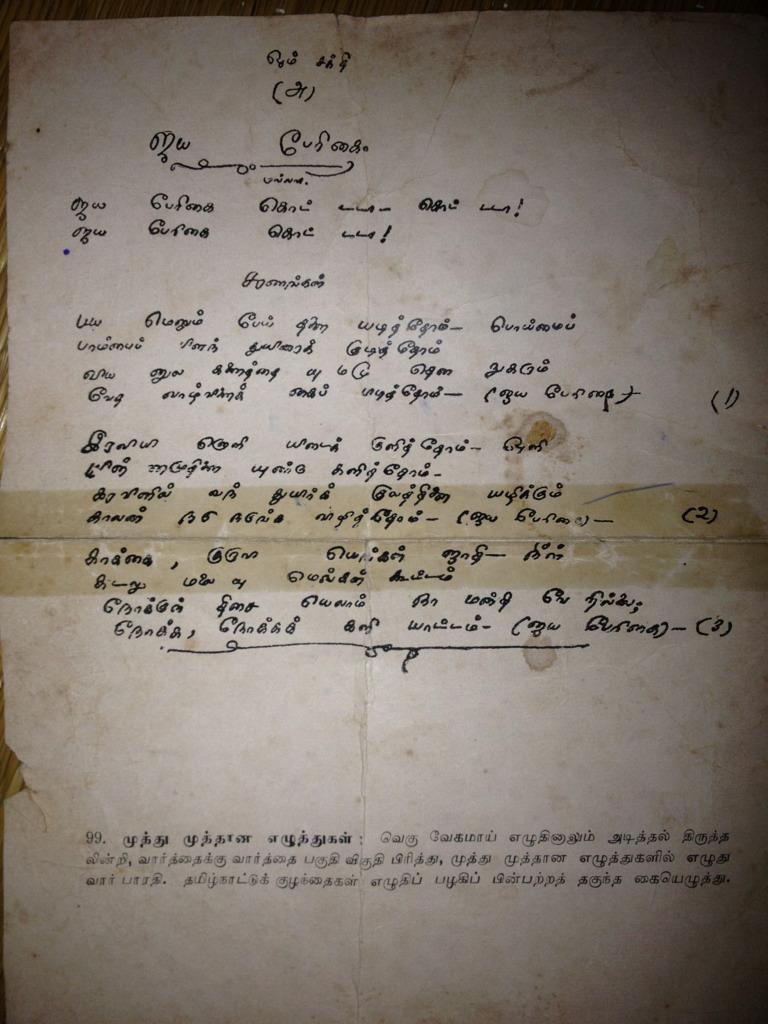 ஓம் சக்தி
(அ)
ஜய பேரிகை
பல்லவி.
ஜய பேரிகை கொட் டடா— கொட் டடா!
ஜய பேரிகை கொட் டடா!
சரணங்கள்
பய மெனும் பேய் தனை யடித் தோம்— பொய்மைப்
பாம்பைப் பிளந் துயிரைக் குடித் தோம்
விய னுல கனைத்தை யு மமு தென நுகரும்
வேத வாழ்வினைக் கைப் பிடித்தோம்— (ஜய பேரிகை)— (1)
இரவியி னொளி யிடைக் குளித் தோம்— ஒளி
யின் னமுதினை யுண்டு களித்தோம்—
கரவினில் வந் துயிர்க் குலத்தினை யழிக்கும்
காலன் நடு நடுங்க விழித்தோம்— (ஜய பேரிகை)— (2)
காக்கை, குருவி யெங்கள் ஜாதி— நீள்
கடலு மலை யு மெங்கள் கூட்டம்
நோக்குந் திசை யெலாம் நா மன்றி வே றில்லை;
நோக்க, நோக்கக் களி யாட்டம்— (ஜய பேரிகை)— (3)
99. முத்து முத்தான எழுத்துகள் : வெகு வேகமாய் எழுதினாலும் அடித்தல் திருத்த
லின்றி, வார்த்தைக்கு வார்த்தை பகுதி விகுதி பிரித்து, முத்து முத்தான எழுத்துகளில் எழுது
வார் பாரதி. தமிழ்நாட்டுக் குழந்தைகள் எழுதிப் பழகிப் பின்பற்றத் தகுந்த கையெழுத்து.